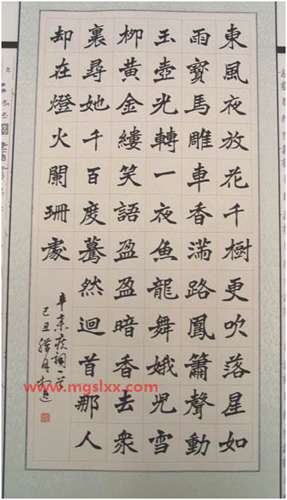 東風夜放花千樹更吹落星如
雨寶馬雕車香滿路鳳簫聲動
玉壺光轉一夜魚龍舞娥兒雪
柳黃金縷笑語盈盈暗香去衆
裏尋她千百度驀然迴首那人
却在燈火闌珊處
辛棄疾詞一首
己丑
www.mgslxx.com